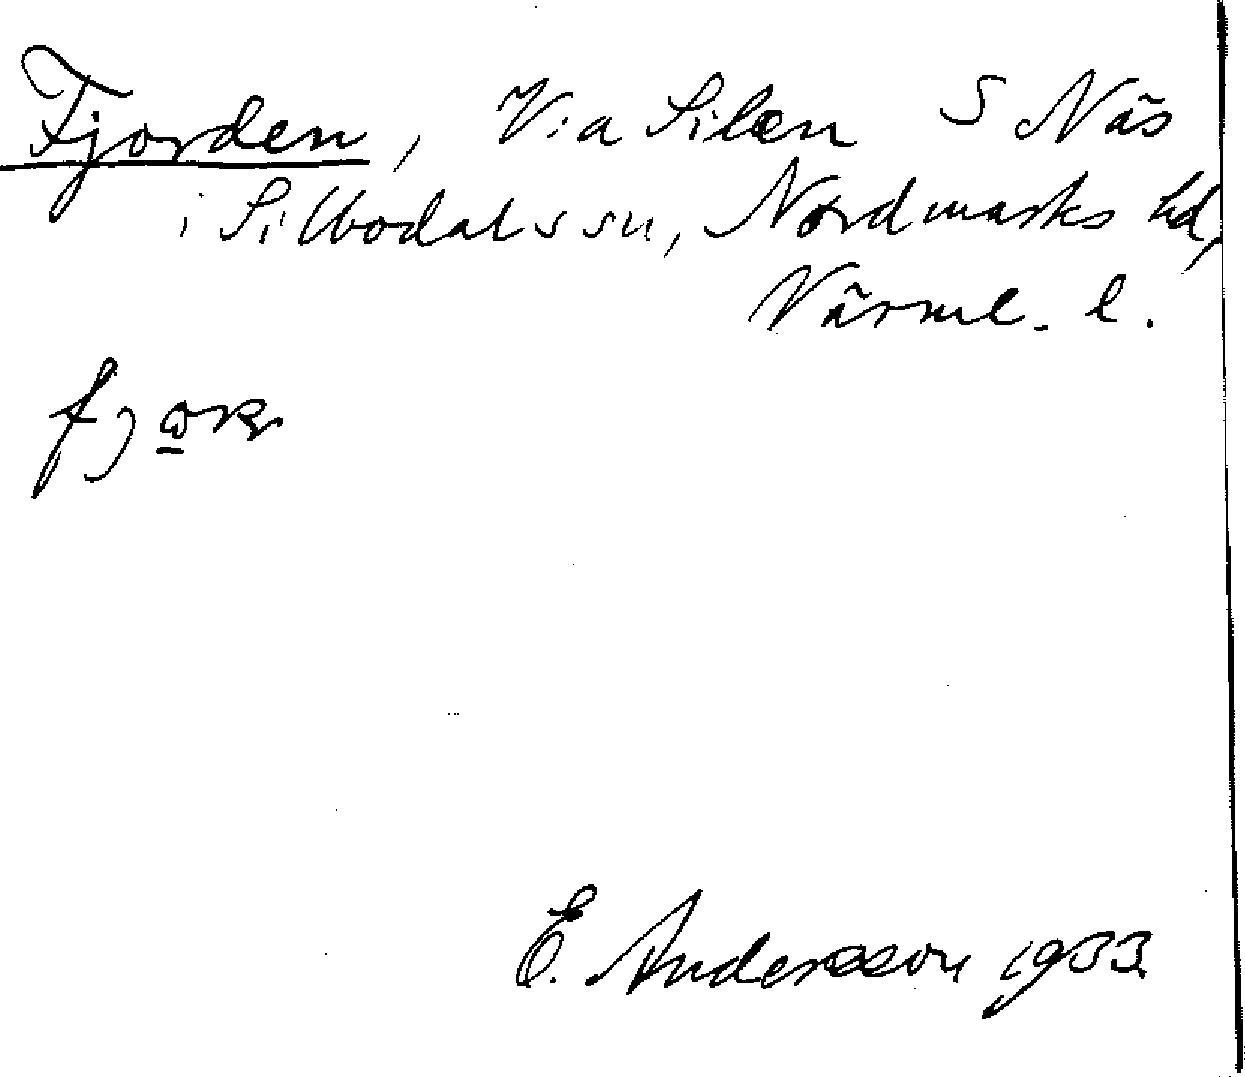 Fjorden, V:a Silen S Näs
i Silbodals sn, Nordmarks hd,
Värml. l.
E. Andersson 1933